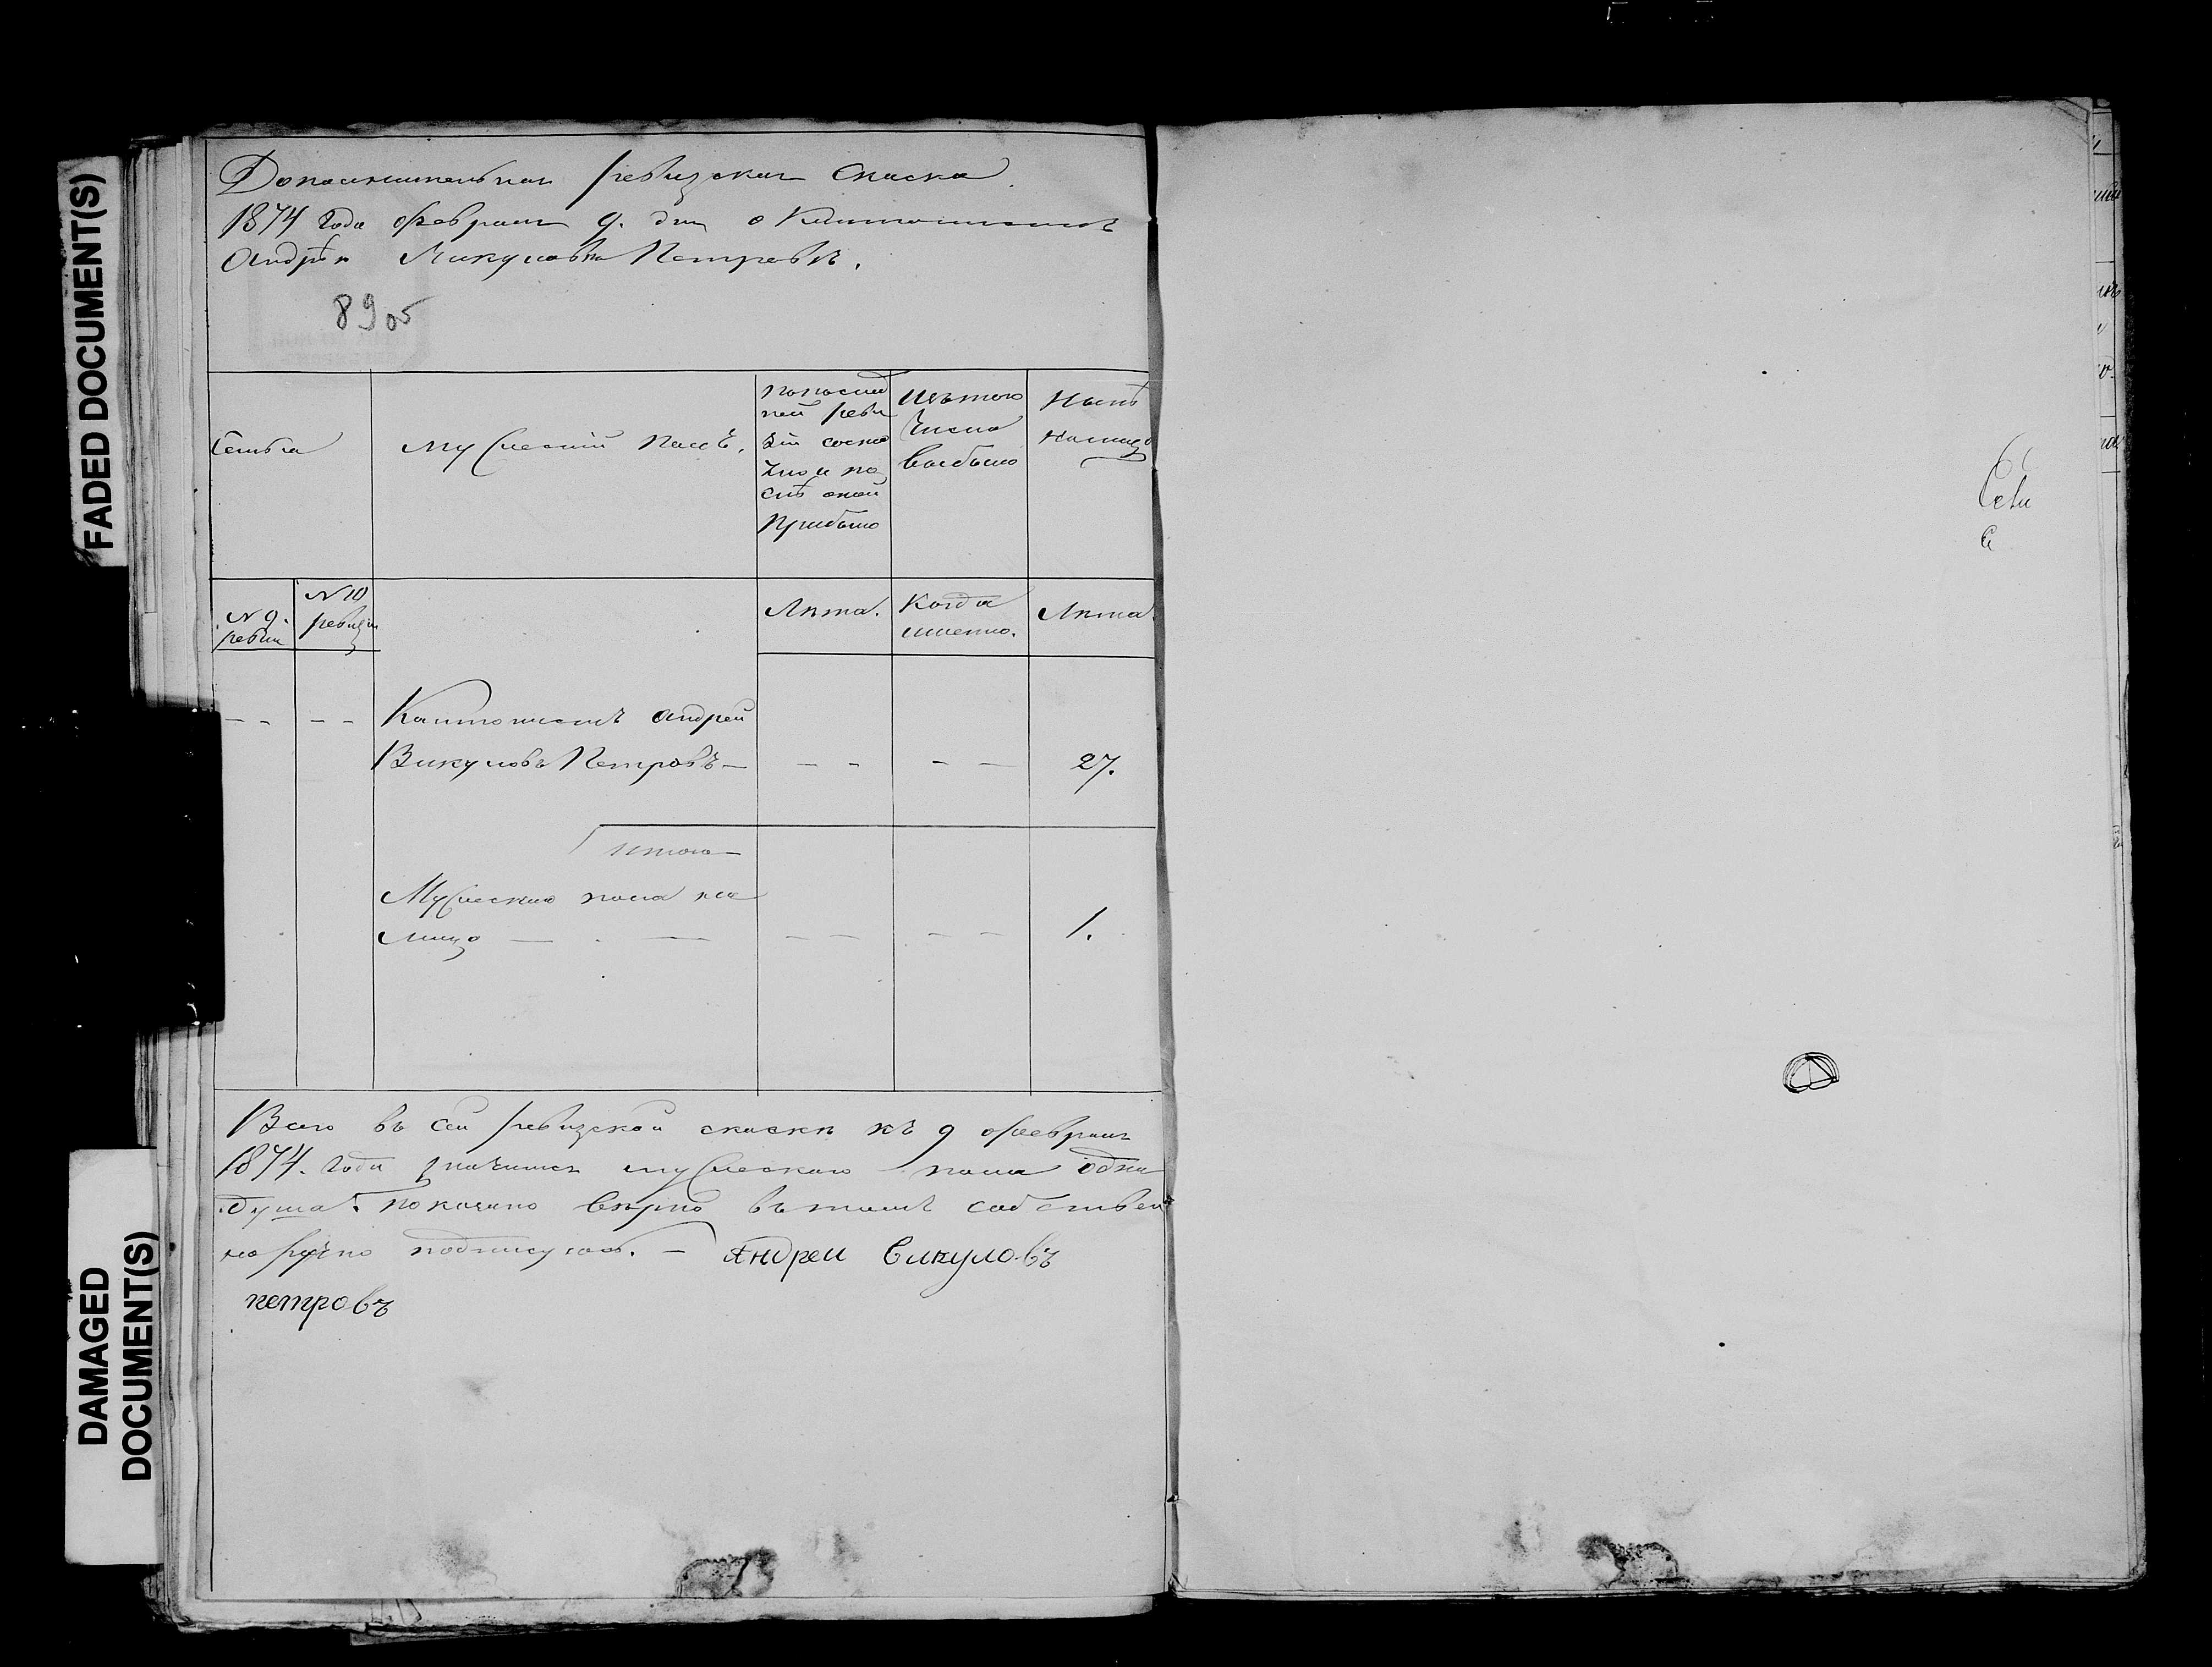 FADED DOCUMENT(S)
DAMAGED DOCUMENT(S)
Дополнительная ревизская скаска
1874 года февраля 9. дня о Кантонисте
Андрѣе Викуловѣ Петровѣ.
8905
Семья
Мужескій полъ.
По послед
ней реви
зіи состо
яло и по
слѣ оной
прибыло
Изъ того
числа
выбыло
Нынѣ
налицо
№ 9.
ревизіи
№ 10
ревизіи
Лѣта.
Когда
именно.
Лѣта.
Кантонистъ Андрей
Викуловъ Петровъ — 27.
Итого —
Мужеска пола на
лицо — 1.
Всего въ сей ревизской скаскѣ къ 9 февраля
1874. года значится мужеска пола одна
душа. Показано верно въ томъ собствен
норучно подписуюсь. — Андреи Викуловъ
петровъ